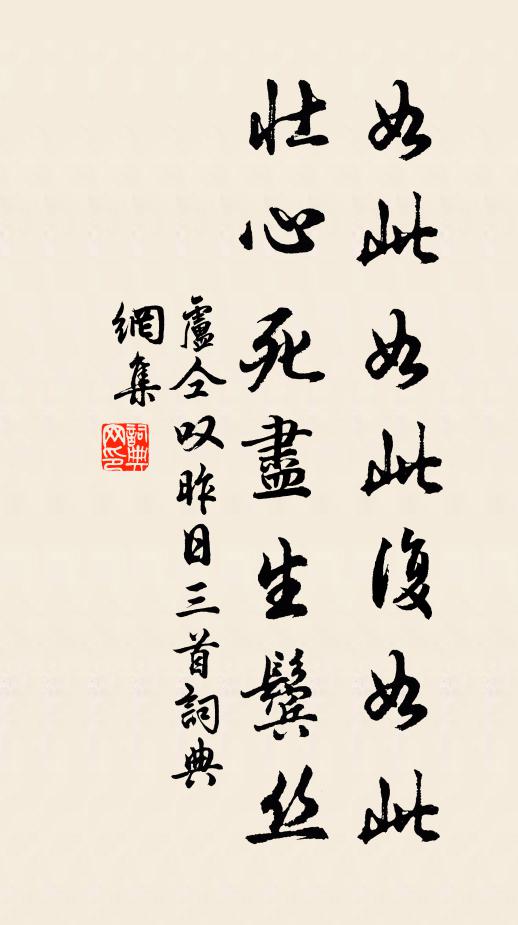 如此如此復如此
壯心死盡生鬢丝
盧仝叹昨日三首詞典
網集
詞典
网印